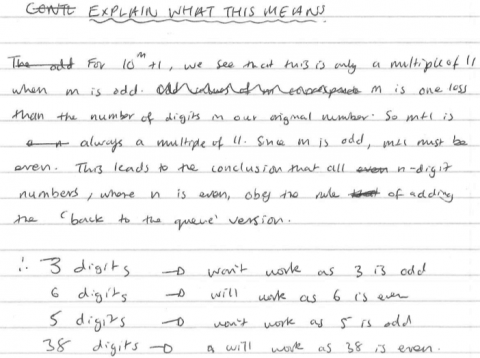 CONTE EXPLAIN WHAT THIS MEANS
The odd For 10^m+1, we see that this is only a multiple of 11
when m is odd. m is one less
than the number of digits in our original number. So m+1 is
always a multiple of 11. Since m is odd, m+1 must be
even. This leads to the conclusion that all even n-digit
numbers, where n is even, obey the rule that of adding
the 'back to the queue' version.
∴ 3 digits → won't work as 3 is odd
6 digits → will work as 6 is even
5 digits → won't work as 5 is odd
38 digits → will work as 38 is even.